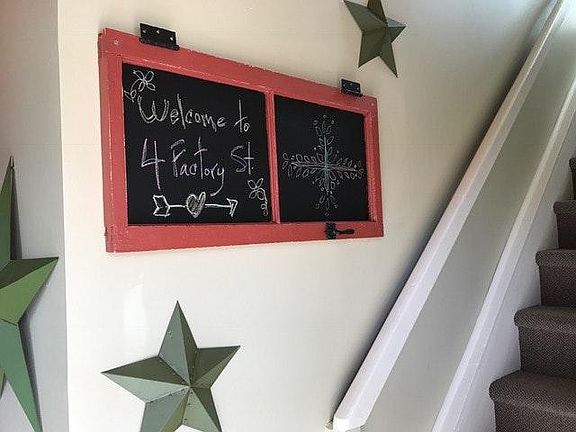 Welcome to
4 Factory St.